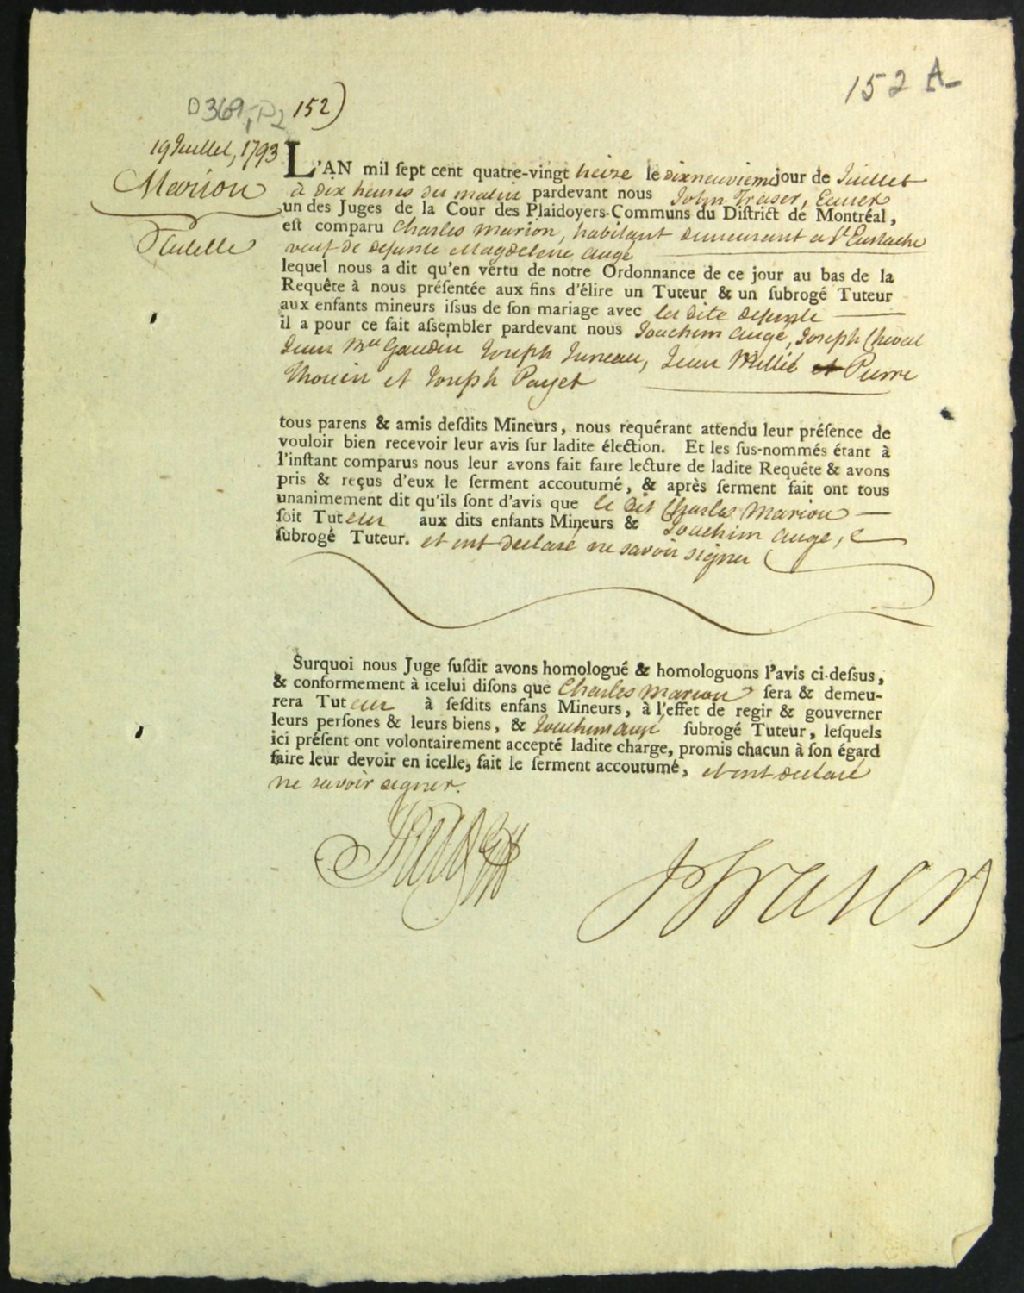 152 A
D369, P2 152)
19 Juillet, 1793
Marion
Tutelle
L'AN mil sept cent quatre-vingt treize le dixneuvieme jour de Juillet
à dix heures du matin pardevant nous John Fraser, Ecuier
un des Juges de la Cour des Plaidoyers Communs du District de Montréal,
est comparu Charles Marion, habitant demeurant a St Eustache
veuf de defunte Magdeleine Augé
lequel nous a dit qu'en vertu de notre Ordonnance de ce jour au bas de la
Requête à nous présentée aux fins d'élire un Tuteur & un subrogé Tuteur
aux enfants mineurs issus de son mariage avec la dite defunte
il a pour ce fait assembler pardevant nous Joachim Augé, Joseph Cheval
Jean Mte Gaudin Joseph Juneau, Jean Millet et Pierre
Thouin et Joseph Payet
tous parens & amis desdits Mineurs, nous requérant attendu leur présence de
vouloir bien recevoir leur avis sur ladite élection. Et les sus-nommés étant à
l'instant comparus nous leur avons fait faire lecture de ladite Requête & avons
pris & reçus d'eux le serment accoutumé, & après serment fait ont tous
unanimement dit qu'ils sont d'avis que le dit Charles Marion
soit Tuteur aux dits enfants Mineurs & Joachim Augé,
subrogé Tuteur. et ont declaré ne savoir signer
Surquoi nous Juge susdit avons homologué & homologuons l'avis ci-dessus,
& conformement à icelui disons que Charles Marion sera & demeu-
rera Tuteur à sesdits enfans Mineurs, à l'effet de regir & gouverner
leurs persones & leurs biens, & Joachim Augé subrogé Tuteur, lesquels
ici présent ont volontairement accepté ladite charge, promis chacun à son égard
faire leur devoir en icelle, fait le serment accoutumé, et ont declaré
ne savoir signer.
J Fraser